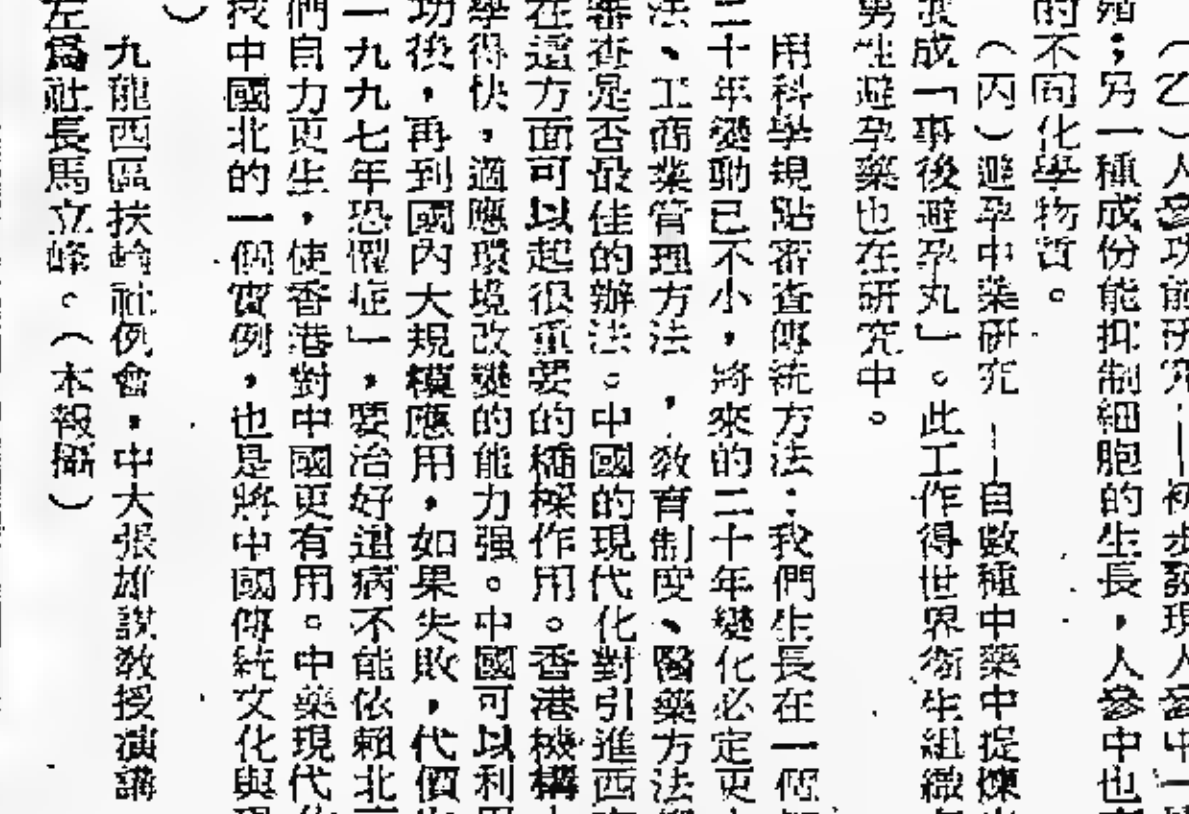 （乙）人參功能研究——初步發現人參中一
殖；另一種成份能抑制細胞的生長，人參中也
的不同化學物質。
（丙）避孕中藥研究——自數種中藥中提煉
成「事後避孕丸」。此工作得世界衛生組織
男性避孕藥也在研究中。
用科學規點審查傳統方法：我們生長在一個
二十年變動已不小，將來的二十年變化必定更
法、工商業管理方法，教育制度、醫藥方法
審查是否最佳的辦法。中國的現代化對引進西
在這方面可以起很重要的橋樑作用。香港機構
學得快，適應環境改變的能力强。中國可以利
功後，再到國內大規模應用，如果失敗，代價
一九九七年恐懼症」，要治好這病不能依賴北
們自力更生，使香港對中國更有用。中藥現代
中國化的一個實例，也是將中國傳統文化與
）
九龍西區扶輪社例會，中大張雄謀敎授演講
左爲社長馬立峰。（本報攝）